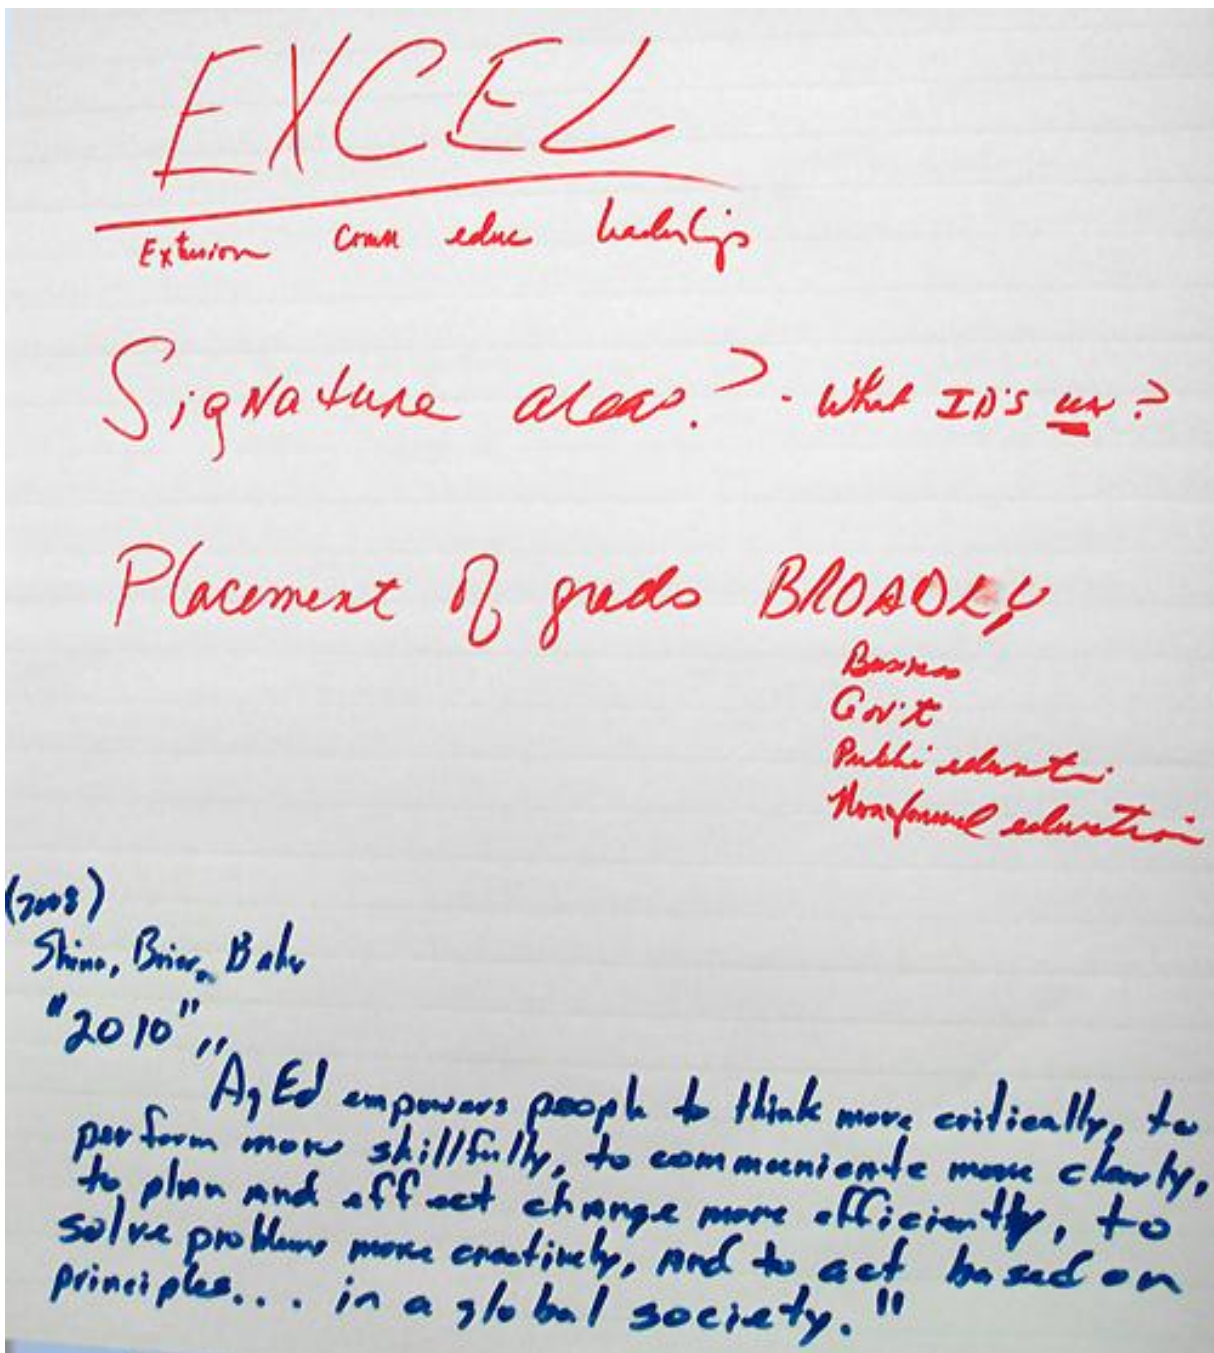 EXCEL
Extension Comm educ leadership
Signature areas? - What ID's us?
Placement of grads BROADLY
Business
Gov't
Public education
Nonformal education
(2008)
Shinn, Briers, Baker
"2010",,
"AgEd empowers people to think more critically, to
perform more skillfully, to communicate more clearly,
to plan and effect change more efficiently, to
solve problems more creatively, and to act based on
principles... in a global society."